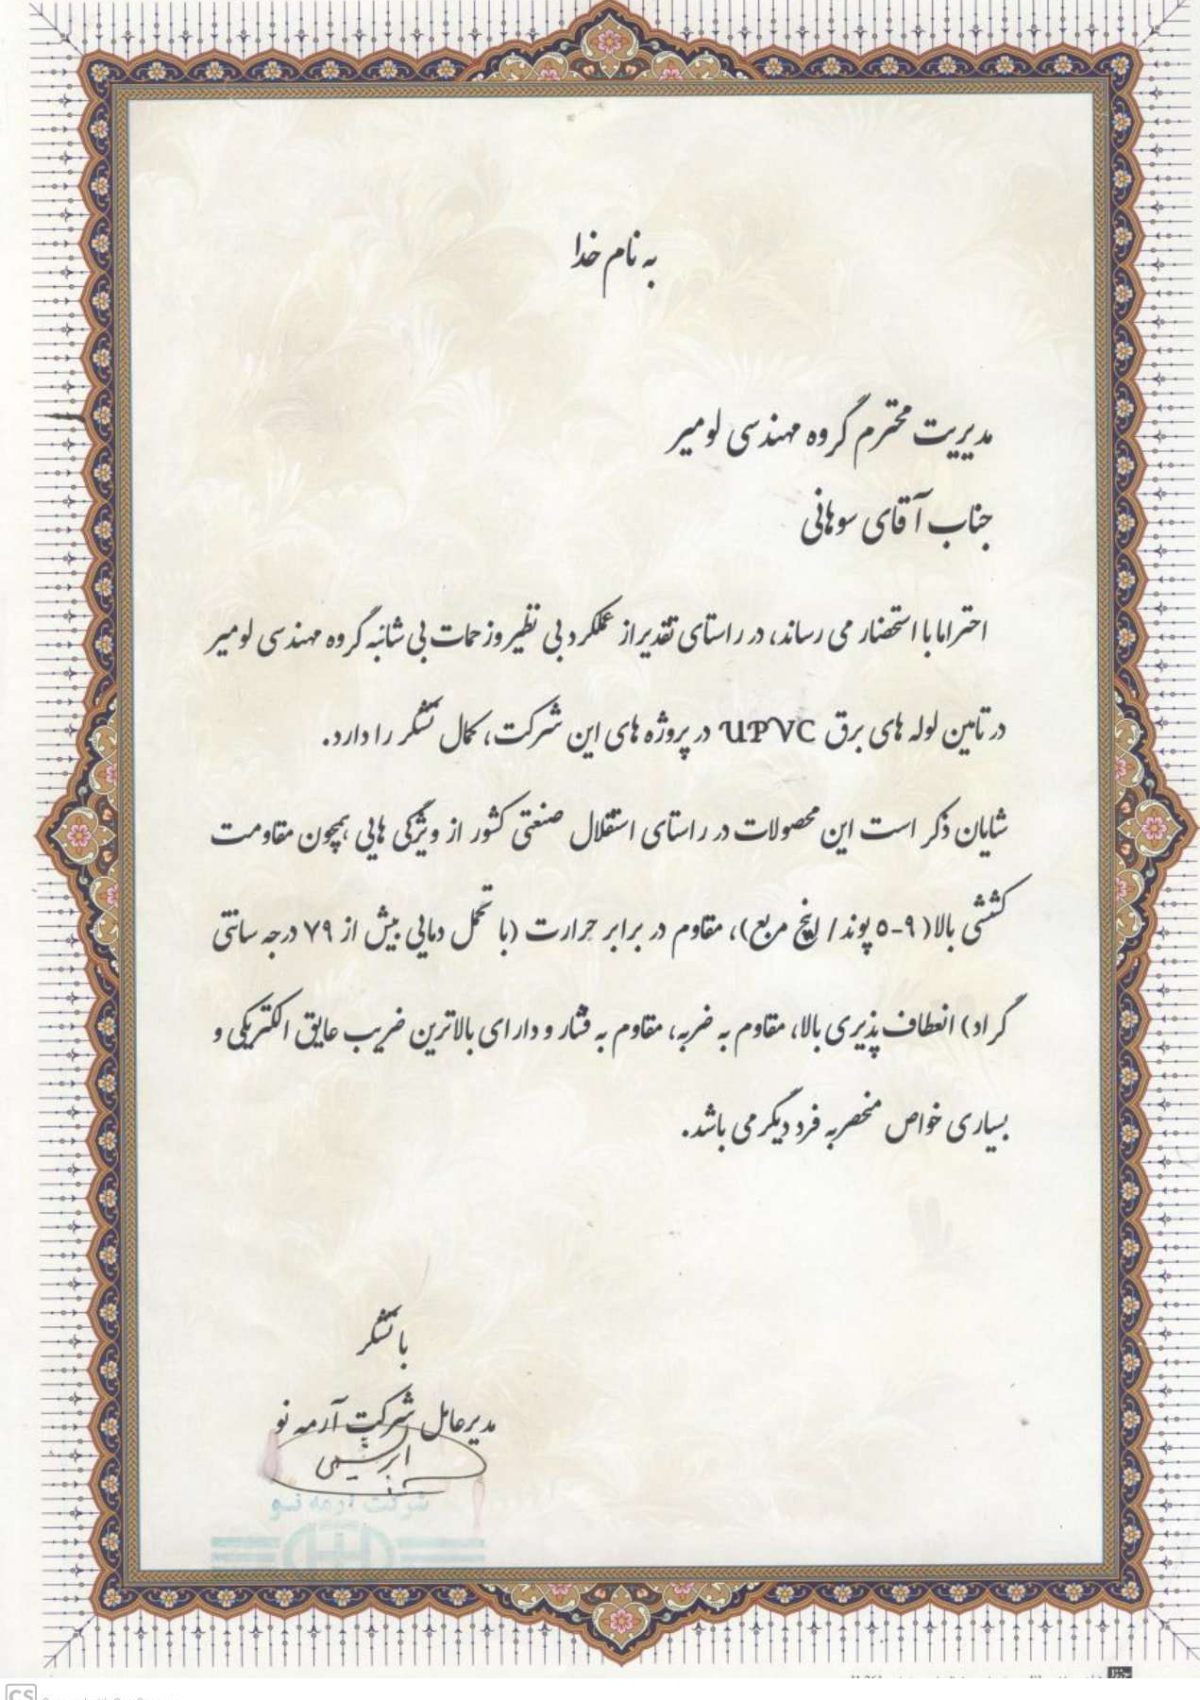 به نام خدا
مدیریت محترم گروه مهندسی لومیر
جناب آقای سوهانی
احتراما با استحضار می رساند، در راستای تقدیر از عملکرد بی نظیر و زحمات بی شائبه گروه مهندسی لومیر
در تامین لوله های برق UPVC در پروژه های این شرکت، کمال تشکر را دارد.
شایان ذکر است این محصولات در راستای استقلال صنعتی کشور از ویژگی هایی همچون مقاومت
کششی بالا( ۹-۵ پوند / اینچ مربع)، مقاوم در برابر حرارت (با تحمل دمایی بیش از ۷۹ درجه سانتی
گراد) انعطاف پذیری بالا، مقاوم به ضربه، مقاوم به فشار و دارای بالاترین ضریب عایق الکتریکی و
بسیاری خواص منحصر به فرد دیگر می باشد.
با تشکر
مدیرعامل شرکت آرمه نو
ابریشمی
شرکت آرمه نو
CS